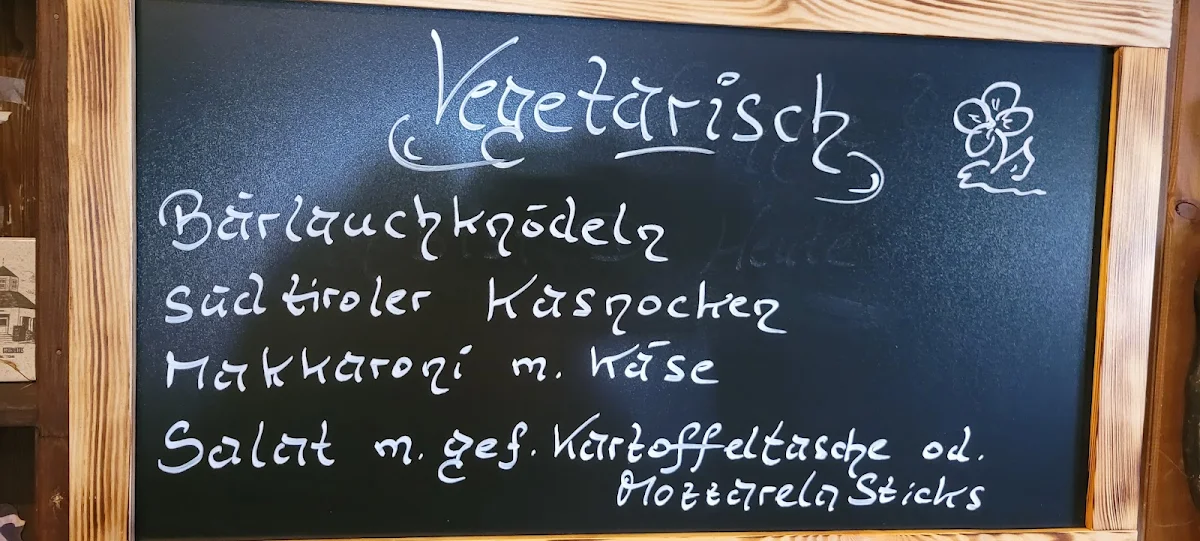 Vegetarisch
Bärlauchknödeln
Südtiroler Kasnocken
Makkaroni m. Käse
Salat m. gef. Kartoffeltasche od.
Mozzarela Sticks